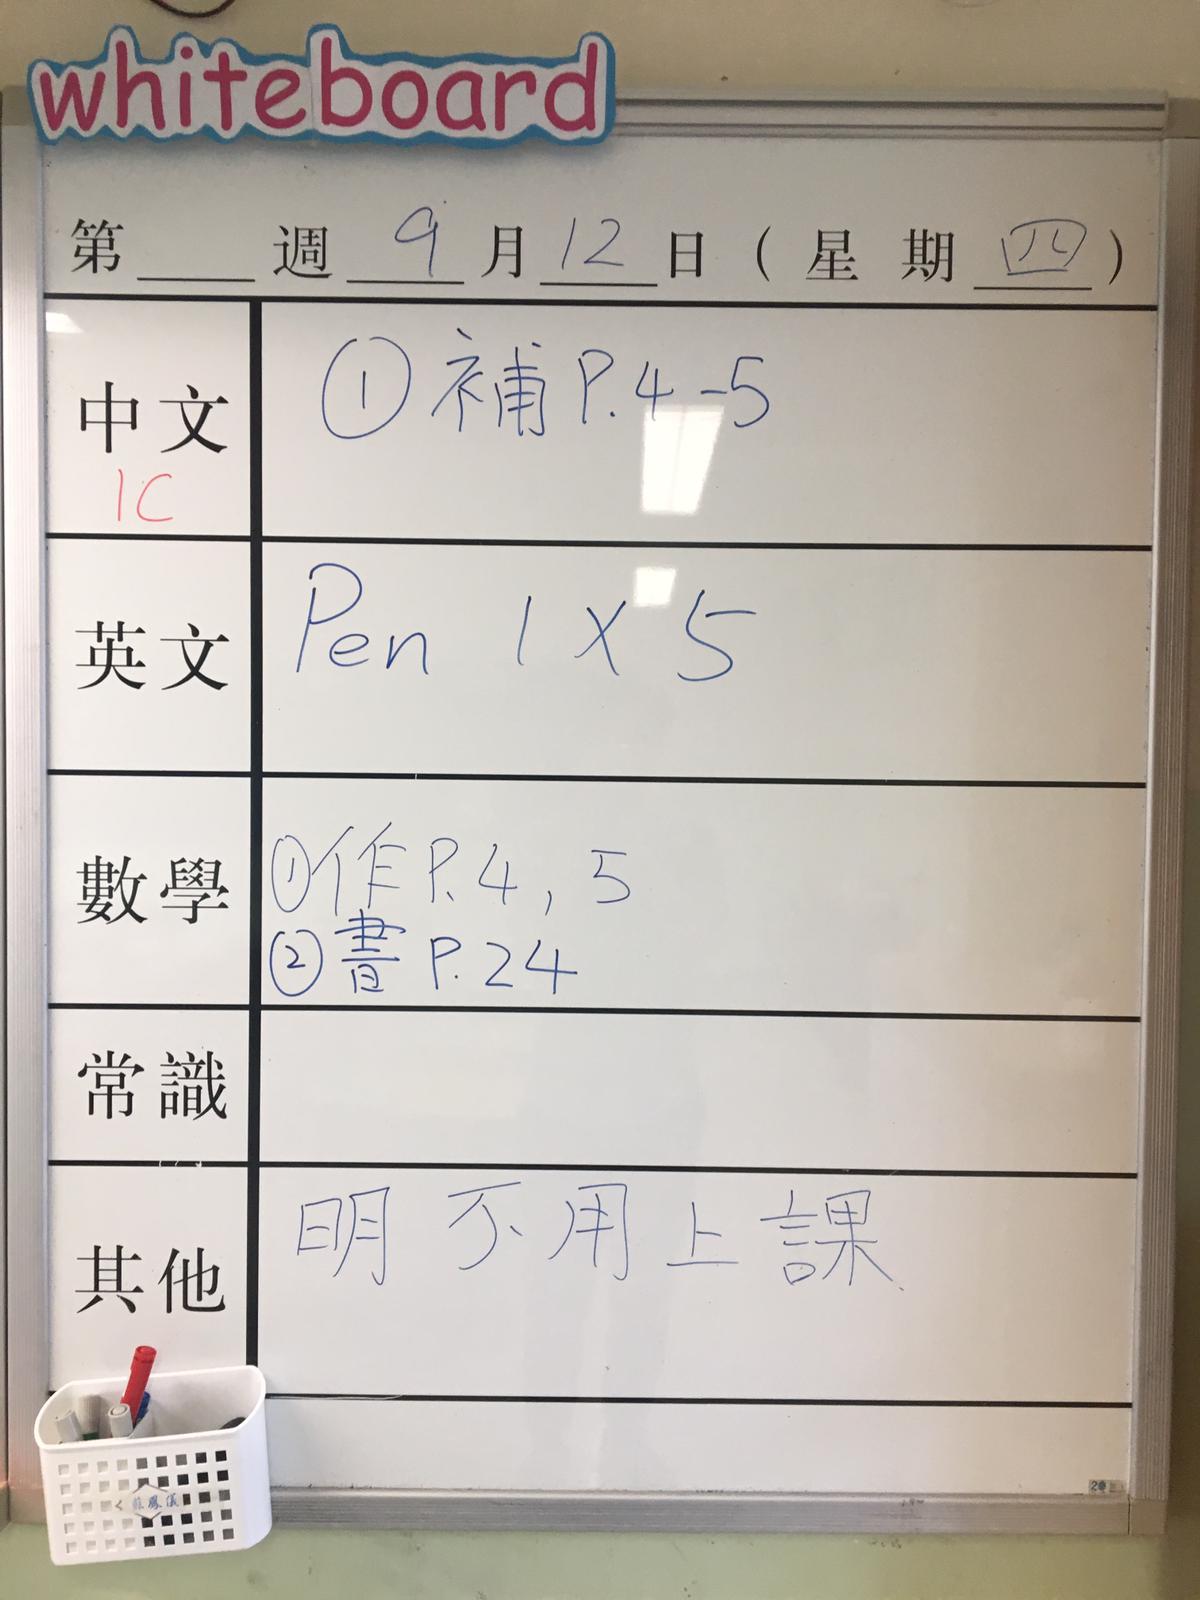 whiteboard
第____週 9 月 12 日 ( 星期 四 )
中文 ① 補 P.4-5
1C
英文 Pen 1 X 5
數學 ① 作 P.4, 5
② 書 P.24
常識
其他 明不用上課